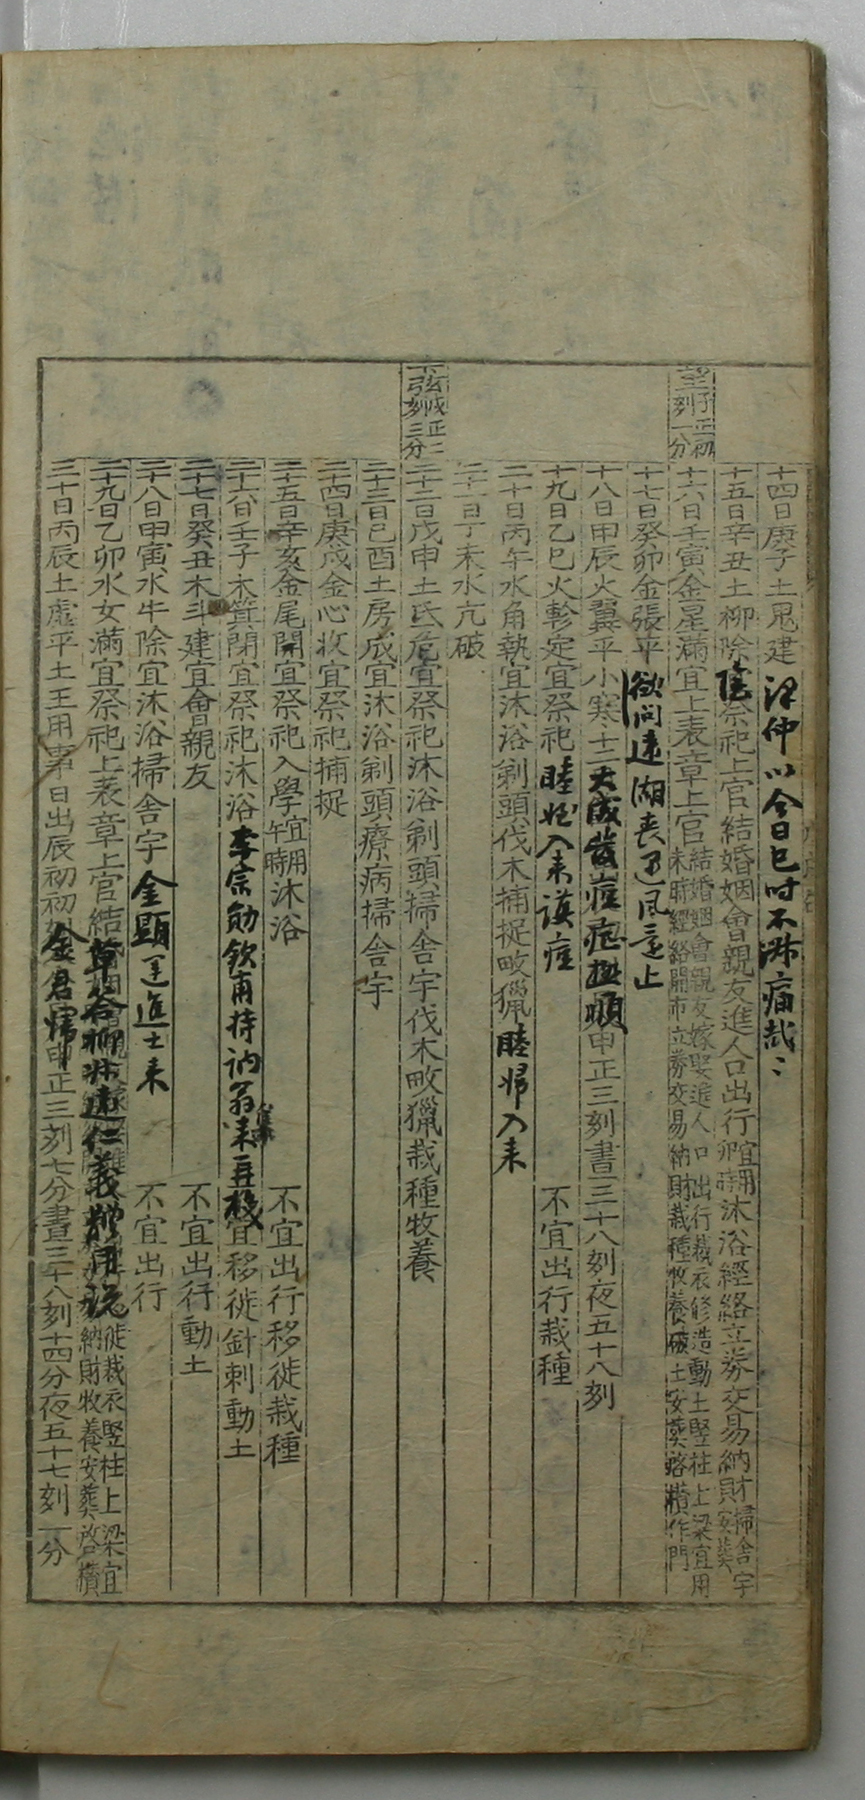 望子正初三刻一分
下弦戌正二刻三分
十四日庚子土鬼建 仲以今日巳時不淑痛哉〻
十五日辛丑土柳除宜祭祀上官結婚姻會親友進人口出行宜用卯時沐浴經絡立券交易納財掃舍宇安葬
十六日壬寅金星滿宜上表章上官結婚姻會親友嫁娶進人口出行裁衣修造動土竪柱上梁宜用未時經絡開市立券交易納財栽種牧養破土安葬啓攢作門
十七日癸卯金張平 欲問遠湖喪 風寒止
十八日甲辰火翼平小寒十二 大成發痘 極順 申正三刻晝三十八刻夜五十八刻
十九日乙巳火軫定宜祭祀 睦姪入来 痘 不宜出行栽種
二十日丙午水角執宜沐浴剃頭伐木捕捉畋獵 睦婦入来
二十一日丁未水亢破
二十二日戊申土氐危宜祭祀沐浴剃頭掃舍宇伐木畋獵栽種牧養
二十三日己酉土房成宜沐浴剃頭療病掃舍宇
二十四日庚戌金心收宜祭祀捕捉
二十五日辛亥金尾開宜祭祀入學宜用午時沐浴 不宜出行移徙栽種
二十六日壬子木箕閉宜祭祀沐浴 李宗勛欽甫持訥翁 来 宜移徙針刺動土
二十七日癸丑木斗建宜會親友 不宜出行動土
二十八日甲寅水牛除宜沐浴掃舍宇 金顯 進士来 不宜出行
二十九日乙卯水女滿宜祭祀上表章上官結 草谷柳 遠仁義 用說 徙裁衣竪柱上梁宜 納財牧養安葬啓攢
三十日丙辰土虛平土王用事日出辰初初刻 金君歸 申正三刻七分晝三十八刻十四分夜五十七刻一分